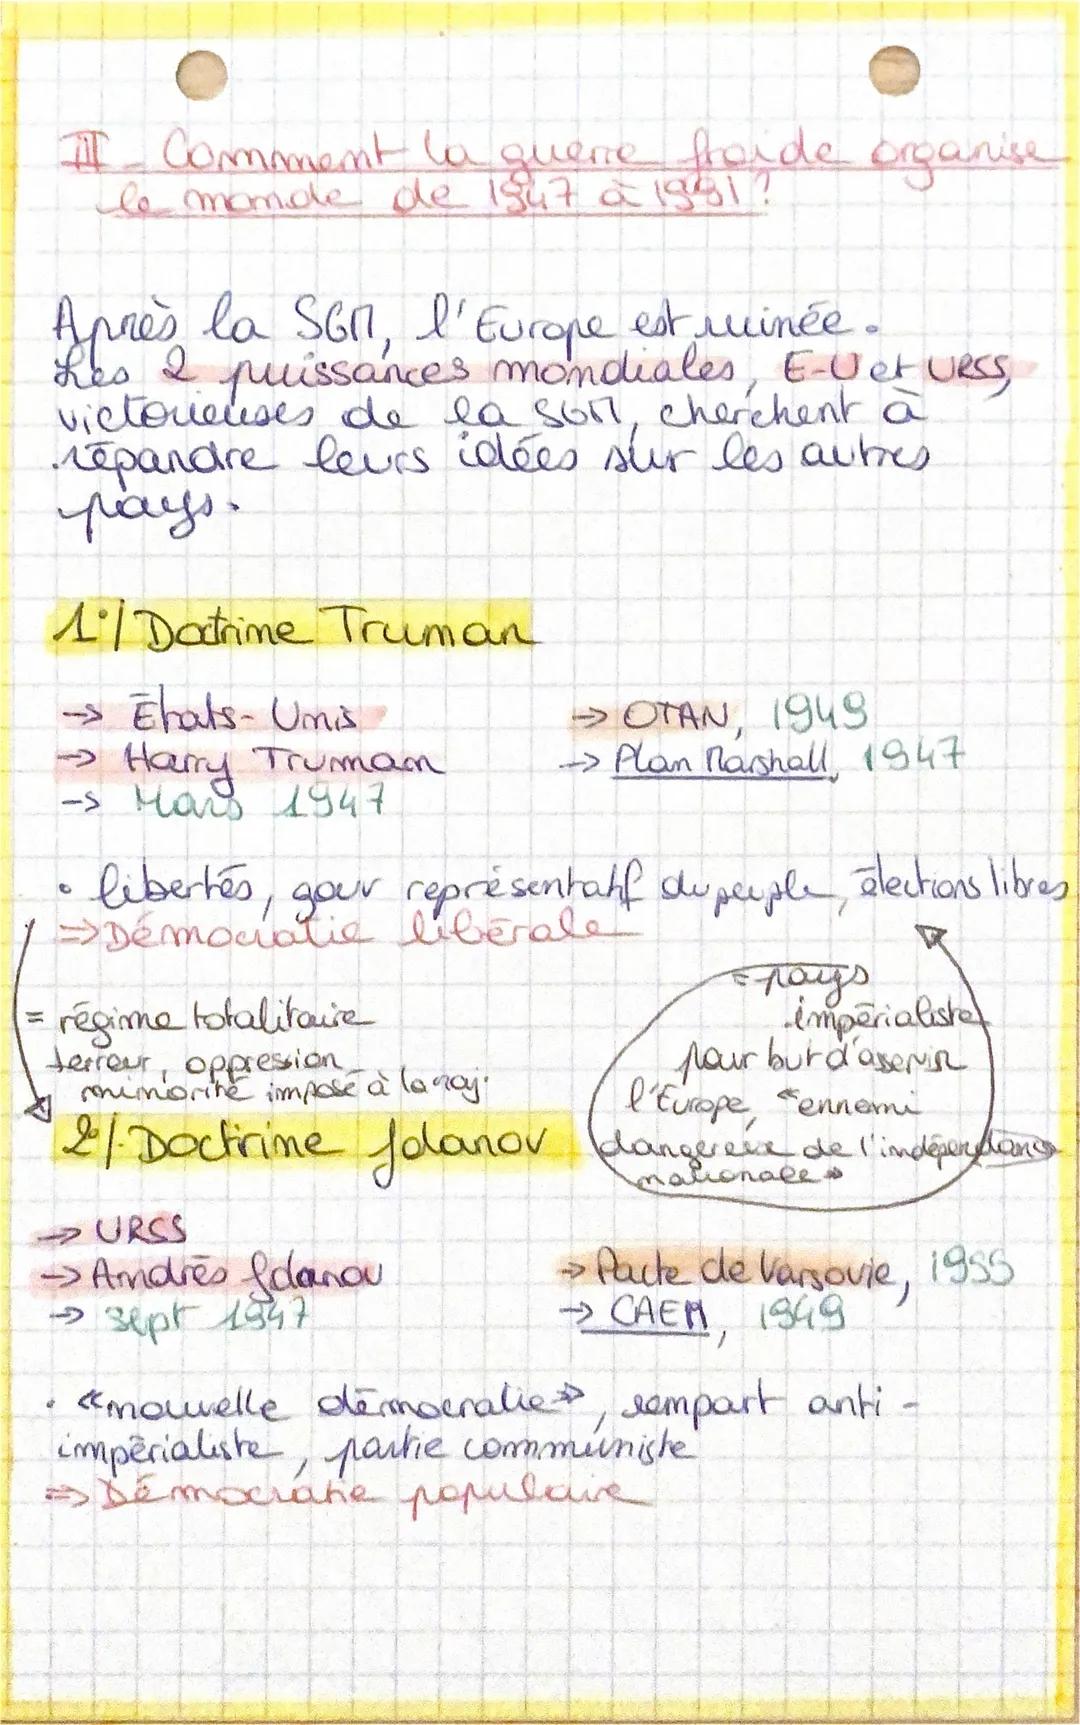 III - Comment la guerre froide organise
le monde de 1947 à 1991 ?
Après la SGM, l'Europe est ruinée.
Les 2 puissances mondiales, E-U et URSS,
victorieuses de la SGM, cherchent à
répandre leurs idées sur les autres
pays.
1°/ Doctrine Truman
→ États-Unis
→ Harry Truman
→ Mars 1947
→ OTAN, 1949
→ Plan Marshall, 1947
• libertés, gouv représentatif du peuple, élections libres
⇒ Démocratie libérale
= régime totalitaire
terreur, oppression
minorité imposé à la maj.
= pays
impérialiste
pour but d'asservir
l'Europe, "ennemi
dangereux de l'indépendance
nationale »
2°/ Doctrine Jdanov
→ URSS
→ Andrés Jdanov
→ sept 1947
→ Pacte de Varsovie, 1955
→ CAEM, 1949
• « nouvelle démocratie », rempart anti-
impérialiste, partie communiste
⇒ Démocratie populaire